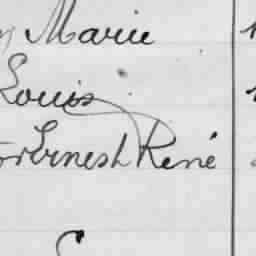 Marie
Louis
Ernest René